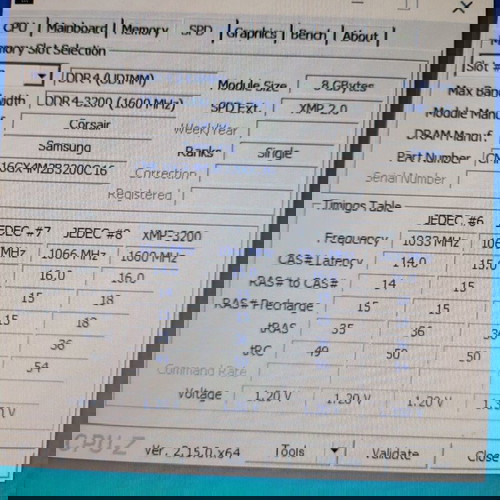 CPU Mainboard Memory SPD Graphics Bench About
Memory Slot Selection
Slot # DDR4 (UDIMM) Module Size 8 GBytes
Max Bandwidth DDR4-3200 (1600 MHz) SPD Ext. XMP 2.0
Module Manuf. Corsair Week/Year
DRAM Manuf. Samsung Ranks Single
Part Number 16GX4M2B3200C16 Correction
Serial Number Registered
Timings Table
JEDEC #6
JEDEC #7 JEDEC #8 XMP-3200
Frequency 1033 MHz
MHz 1066 MHz 1600 MHz
CAS# Latency 14.0 15.0
16.0 16.0
RAS# to CAS# 14 15
15 18
RAS# Precharge 15 15
15 18
tRAS 35 36 34
36
tRC 49 50 50
54
Command Rate
Voltage 1.20 V 1.20 V 1.20 V
CPU-Z Ver. 2.15.0.x64 Tools Validate Close